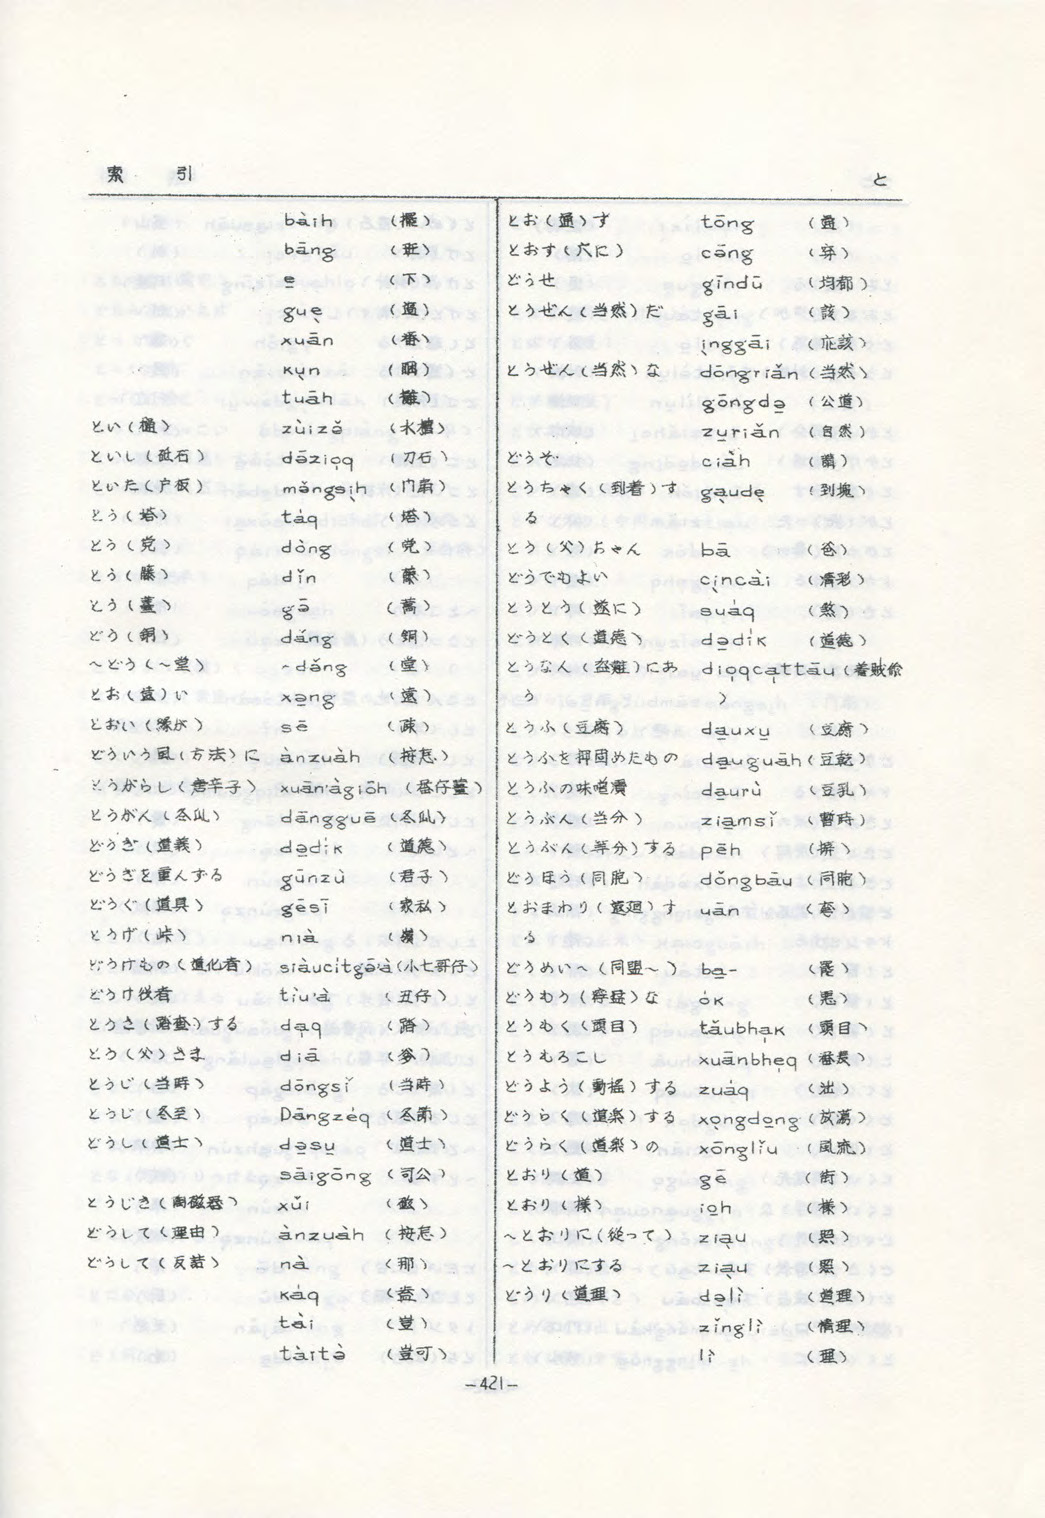 索引 と
bàih (擺)
bāng (班)
e̱ (下)
gue̖ (過)
xuān (番)
ku̖n (睏)
tuāh (攤)
とい(樋) zùizǒ (水槽)
といし(砥石) dōzio̖q (刀石)
といた(戸板) mǒngsi̖h (门扇)
とう(塔) táq (塔)
とう(党) dòng (党)
とう(籐) dǐn (藤)
とう(薹) gō (蒿)
どう(銅) dǎng (銅)
〜どう(〜堂) -dǒng (堂)
とお(遠)い xa̱ng (遠)
とおい(縁が) sē (疎)
どういう風(方法)に ànzuàh (按怎)
とうがらし(唐辛子) xuān'àgiōh (番仔薑)
とうがん(冬瓜) dānggue (冬瓜)
どうぎ(道義) do̱dík (道徳)
どうぎを重んずる gūnzù (君子)
どうぐ(道具) gēsī (家私)
とうげ(峠) nià (嶺)
どうけもの(道化者) siàucítgō'à (小七哥仔)
どうけ役者 tǐu'à (丑仔)
とうさ(踏査)する da̱q (踏)
とう(父)さま diā (爹)
とうじ(当時) dōngsǐ (当時)
とうじ(冬至) Dāngzéq (冬節)
どうし(道士) do̱su̱ (道士)
sāigōng (司公)
とうじき(陶磁器) xǔi (磁)
どうして(理由) ànzuàh (按怎)
どうして(反詰) nà (那)
káq (盍)
tài (豈)
tàitò (豈可)
とお(通)す tōng (通)
とおす(穴に) cōng (穿)
どうせ gīndū (均都)
とうぜん(当然)だ gāi (該)
i̖nggāi (応該)
とうぜん(当然)な dōngriǎn (当然)
gōngdo̱ (公道)
zu̱riǎn (自然)
どうぞ ciàh (請)
とうちゃく(到着)す ga̖ude̖ (到塊)
る
とう(父)ちゃん bā (爸)
どうでもよい ci̖ncài (凊彩)
とうとう(遂に) suáq (煞)
どうとく(道徳) do̱dík (道徳)
とうなん(盗難)にあ dio̱qca̖ttāu (着賊偸
う )
とうふ(豆腐) da̱uxu̱ (豆腐)
とうふを押固めたもの da̱uguāh (豆乾)
とうふの味噌漬 da̱urù (豆乳)
とうぶん(当分) zia̱msǐ (暫時)
とうぶん(等分)する pēh (摒)
どうほう(同胞) dǒngbāu (同胞)
とおまわり(遠廻)す uān (彎)
る
どうめい〜(同盟〜) ba̱- (罷)
どうもう(獰猛)な ók (悪)
とうもく(頭目) tǎubha̱k (頭目)
とうもろこし xuānbhe̱q (番麦)
どうよう(動揺)する zuáq (泏)
どうらく(道楽)する xo̖ngdo̱ng (放蕩)
どうらく(道楽)の xōnglǐu (風流)
とおり(道) gē (街)
とおり(様) io̱h (様)
〜とおりに(従って) zia̖u (照)
〜とおりにする zia̖u (照)
どうり(道理) do̱lì (道理)
zǐnglì (情理)
lì (理)
—421—